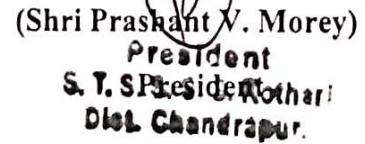 (Shri Prashant V. Morey)
President
S. T. S President Kothari
Dist. Chandrapur.